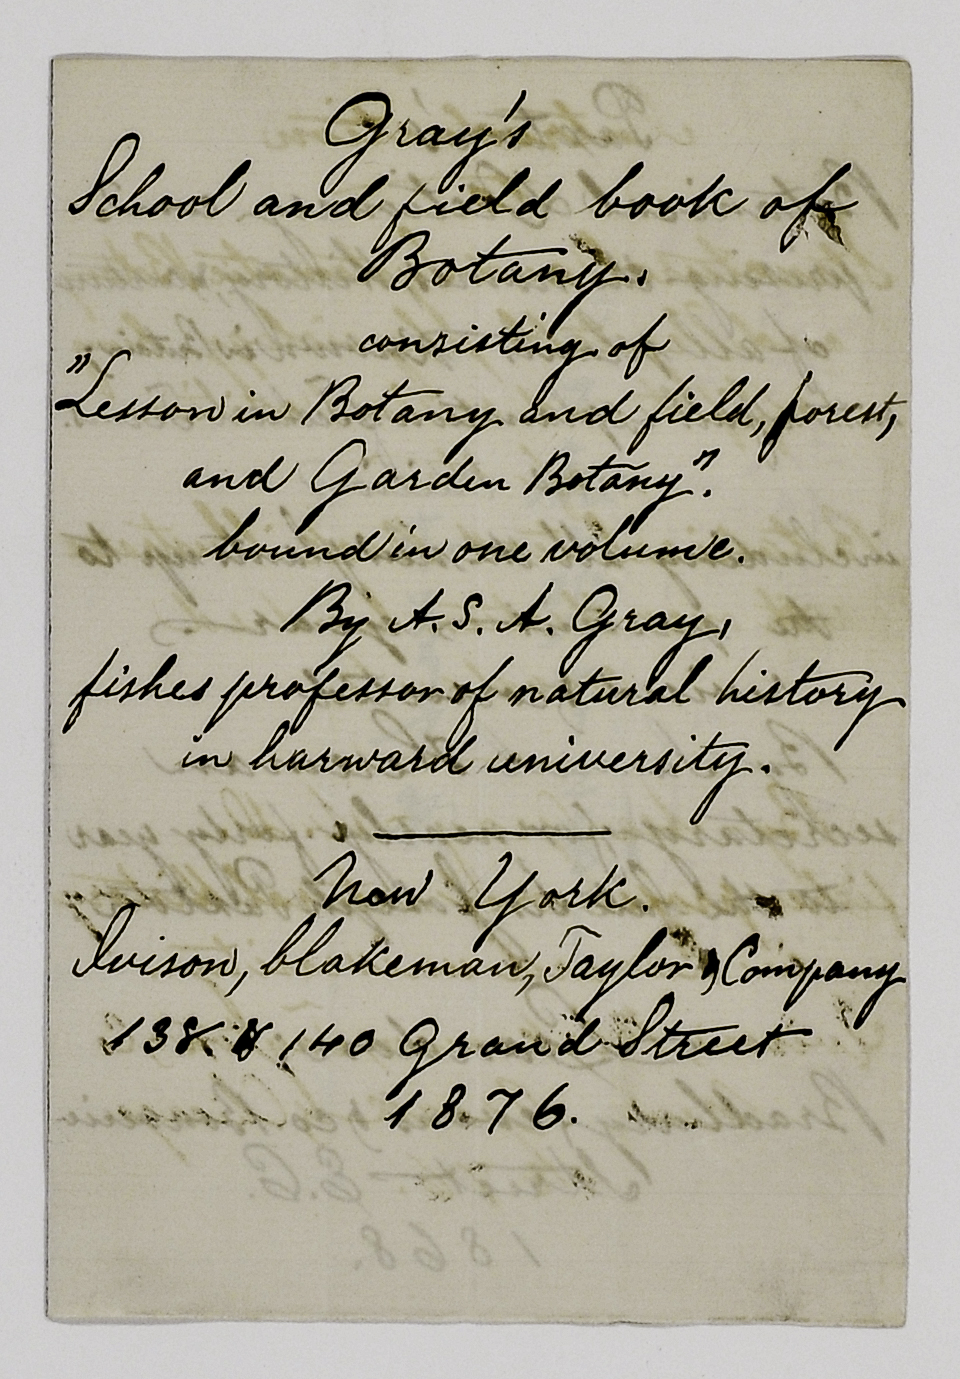 Gray's
School and field book of
Botany.
consisting of
"Lesson in Botany and field, forest,
and Garden Botany".
bound in one volume.
By A. S. A. Gray,
fishes professor of natural history
in harward university.
New York.
Ivison, blakeman, Taylor & Company
138. & 140 Grand Street
1876.